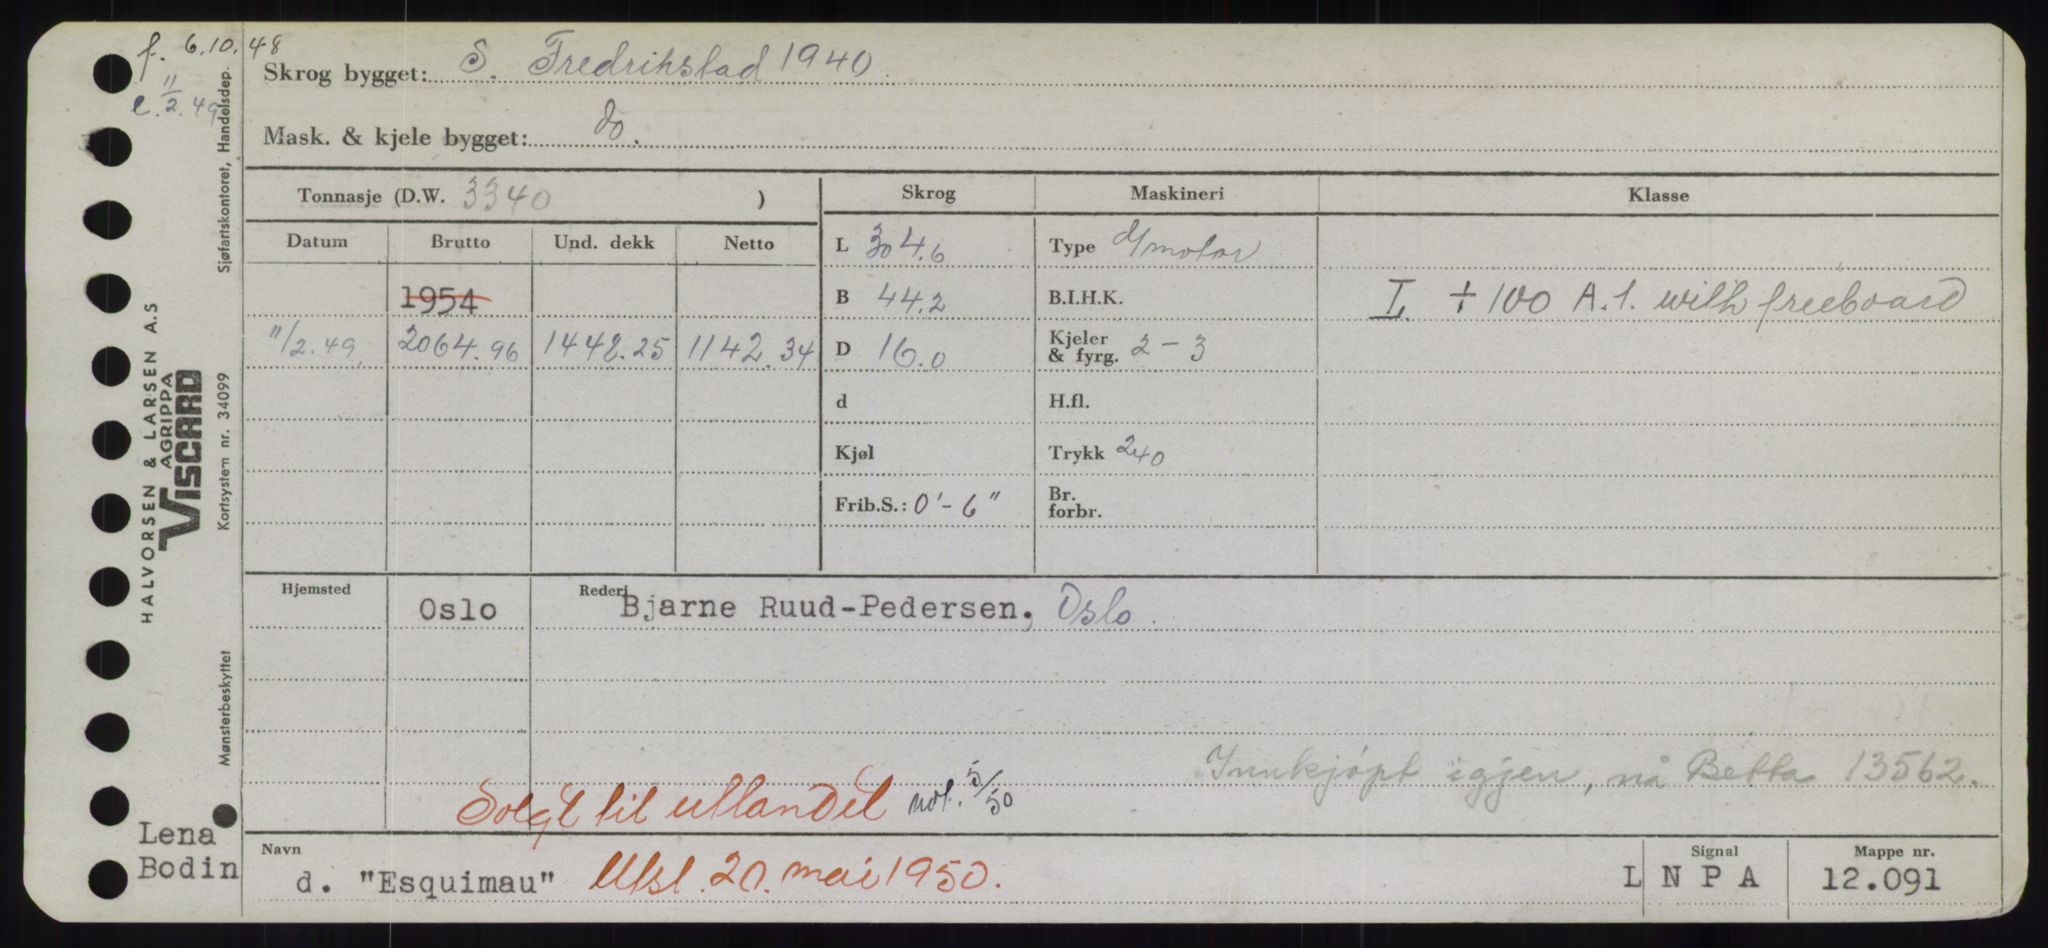 f. 6.10.48
Skrog bygget: S. Fredrikstad 1940
e. 11/2.49
Mask. & kjele bygget: do.
Tonnasje (D.W. 3340 )
Skrog Maskineri Klasse
Datum Brutto Und. dekk Netto
L 304.6 Type d/motor
1954
B 44.2 B.I.H.K. L + 100 A.1. with freeboard
11/2.49. 2064.96 1448.25 1142.34
D 16.0 Kjeler & fyrg. 2 - 3
d H.fl.
Kjøl Trykk 240
Frib.S.: 0'-6" Br. forbr.
Hjemsted Oslo Rederi Bjarne Ruud-Pedersen, Oslo.
Innkjøpt igjen, nå Betta 13562.
Solgt til utlandet not. 5/50
Lena
Bodin
Navn d. "Esquimau" Utsl. 20. mai 1950.
Signal L N P A
Mappe nr. 12.091
HALVORSEN & LARSEN A.S
AGRIPPA
VISCARD
Mønsterbeskyttet Kortsystem nr. 34099 Sjøfartskontoret, Handelsdep.